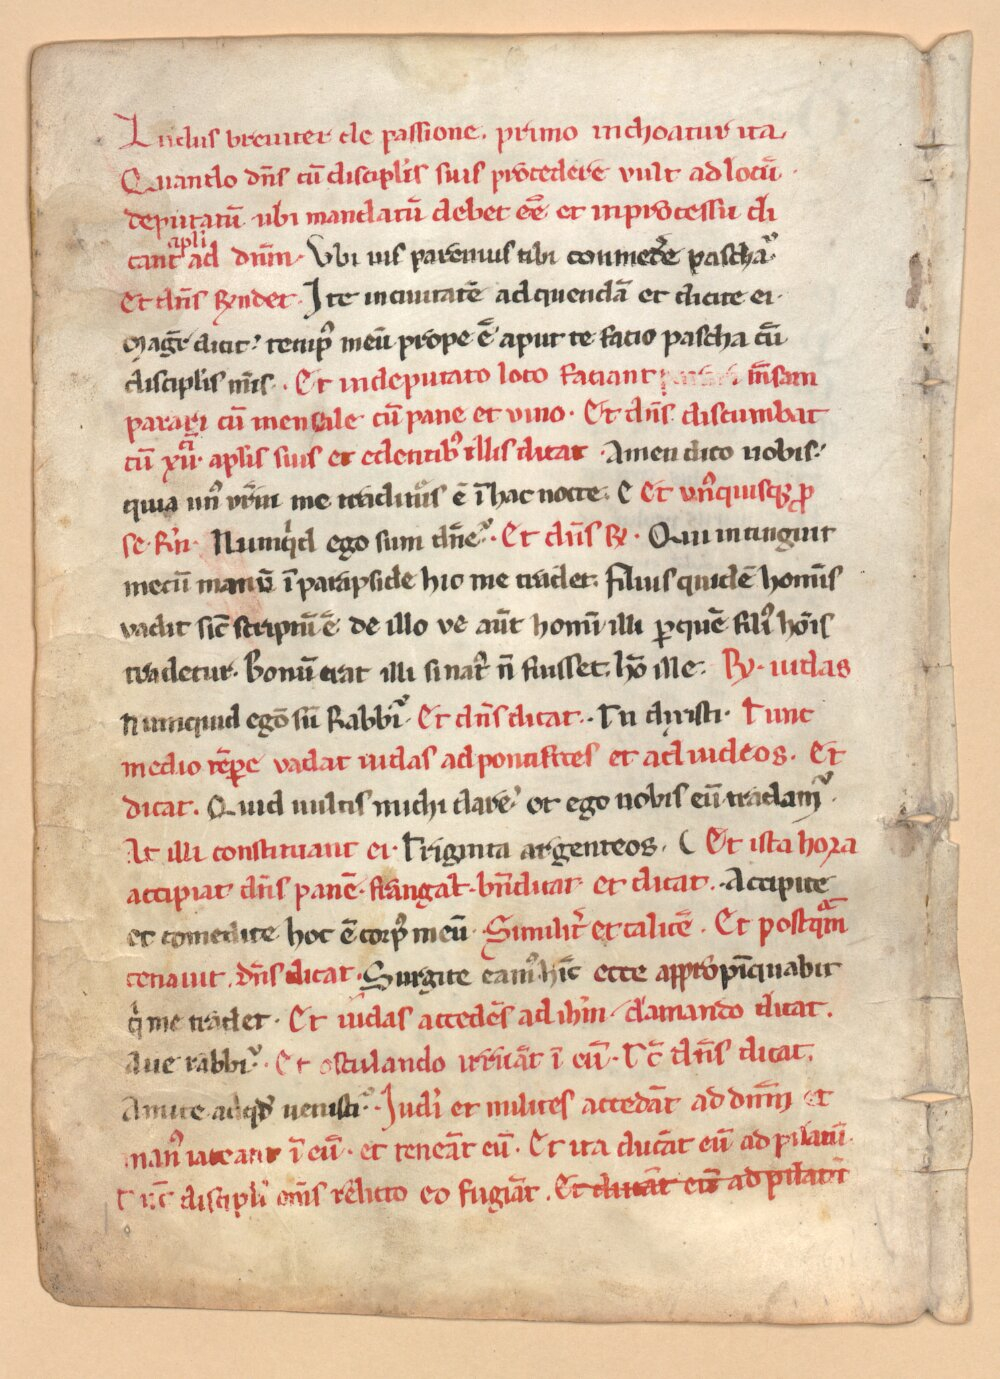 Ludus breviter de passione. primo inchoatur ita.
Quando dn̄s cū discipl̓is suis procedere vult ad locū
deputatū ubi mandatū debet eē et in processu di
apl̓i
cant ad dn̄m. Vbi uis paremus tibi comedere pascha
Et dn̄s Rn̄det. Ite in ciuitatē ad quendā et dicite ei.
magr̄ dicit temp᷒ meū prope ē aput te facio pascha cū
discipl̓is m̄is. Et in deputato loco faciant m̄sam
parari cū mensale cū pane et vino. Et dn̄s discumbat
cū xii. apl̓is suis et edentib᷒ illis dicat Amen dico uobis
quia un᷒ vr̄m me traditur᷒ ē ī hac nocte. Et un᷒quisq pro
se Rn̄. Numqͥd ego sum dn̄e. Et dn̄s R. Qui intinguit
mecū manū ī parapside hic me tradet. filius quidē homīs
vadit sic̄ scriptū ē de illo ve aūt homī illi p quē fili᷒ hōis
tradetur. Bonū erat illi si nat᷒ n̄ fuisset. hō ille. R. iudas
Numquid ego sū Rabbi. Et dn̄s dicat. Tu dixisti. Tunc
medio tēpe vadat iudas ad pontifices et ad iudeos. Et
dicat. Quid uultis michi dare et ego uobis eū tradam.
At illi constituant ei. Triginta argenteos. Et ista hora
accipiat dn̄s panē. frangat. bn̄dicat et dicat. Accipite
et comedite hoc ē corp᷒ meū. Similit̄ et calicē. Et postqᵃm
cenauit. dn̄s dicat. Surgite eam᷒ hīc ecce appropīquabit
qͥ me tradet. Et iudas accedēs ad ih̄m clamando dicat.
Aue rabbi. Et osculando irruāt ī eū. Tc̄ dn̄s dicat.
Amice ad qd uenisti. Iudi et milites accedāt ad dn̄m et
man᷒ iaceant ī eū. et teneāt eū. Et ita ducāt eū ad pilatū.
Tūc discipl̓i om̄s relicto eo fugiāt. Et ducāt eū ad pilatū